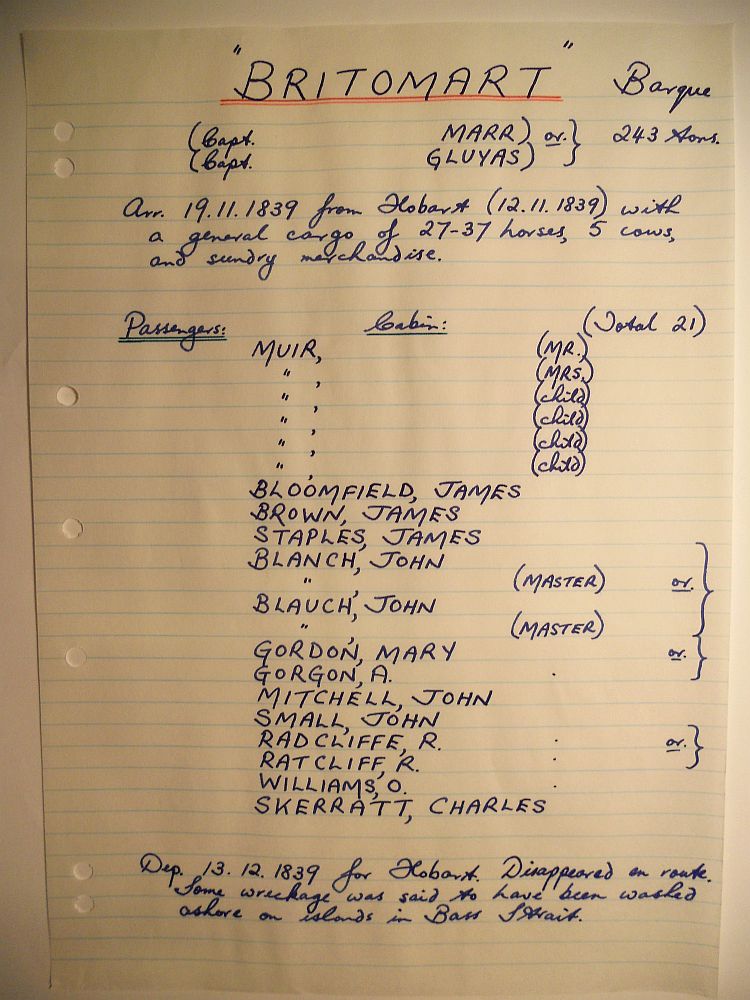 "BRITOMART" Barque
(Capt. MARR) or. } 243 tons.
(Capt. GLUYAS)
Arr. 19.11.1839 from Hobart (12.11.1839) with
a general cargo of 27-37 horses, 5 cows,
and sundry merchandise.
Passengers: Cabin: (Total 21)
MUIR, (MR.)
" , (MRS.)
" , (child)
" , (child)
" , (child)
" , (child)
BLOOMFIELD, JAMES
BROWN, JAMES
STAPLES, JAMES
BLANCH, JOHN
" , (MASTER) or. }
BLAUCH, JOHN
" , (MASTER)
GORDON, MARY or. }
GORGON, A. .
MITCHELL, JOHN
SMALL, JOHN
RADCLIFFE, R. . or. }
RATCLIFF, R. .
WILLIAMS, O. .
SKERRATT, CHARLES
Dep. 13.12.1839 for Hobart. Disappeared en route.
Some wreckage was said to have been washed
ashore on islands in Bass Strait.